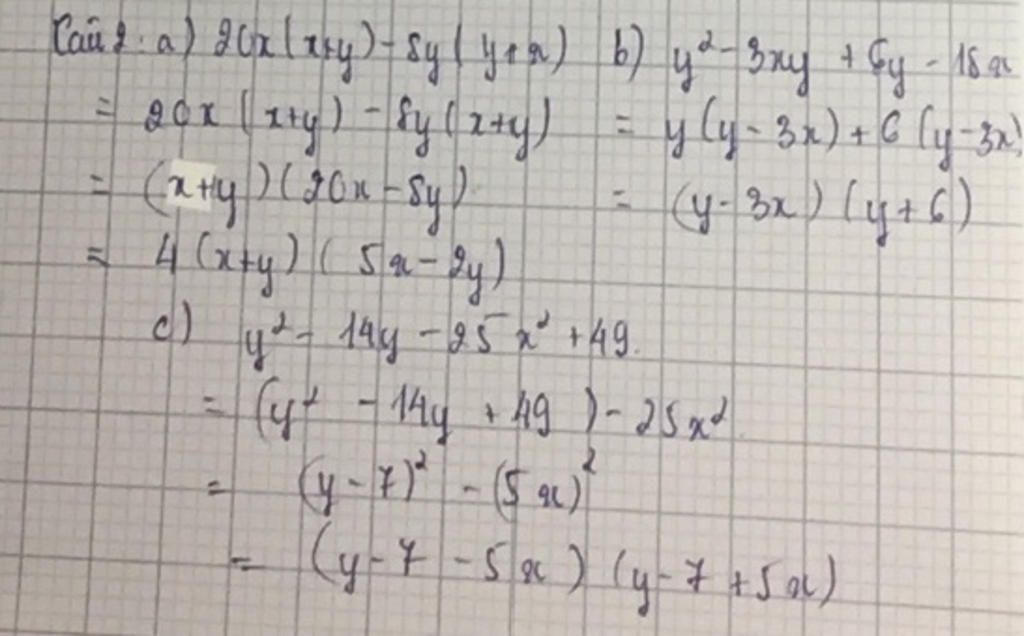 Câu 2: a) 20x(x+y) - 8y(y+x)
= 20x(x+y) - 8y(x+y)
= (x+y)(20x-8y)
= 4(x+y)(5x-2y)
b) y² - 3xy + 6y - 18x
= y(y-3x) + 6(y-3x)
= (y-3x)(y+6)
c) y² - 14y - 25x² + 49.
= (y² - 14y + 49) - 25x²
= (y-7)² - (5x)²
= (y-7-5x)(y-7+5x)